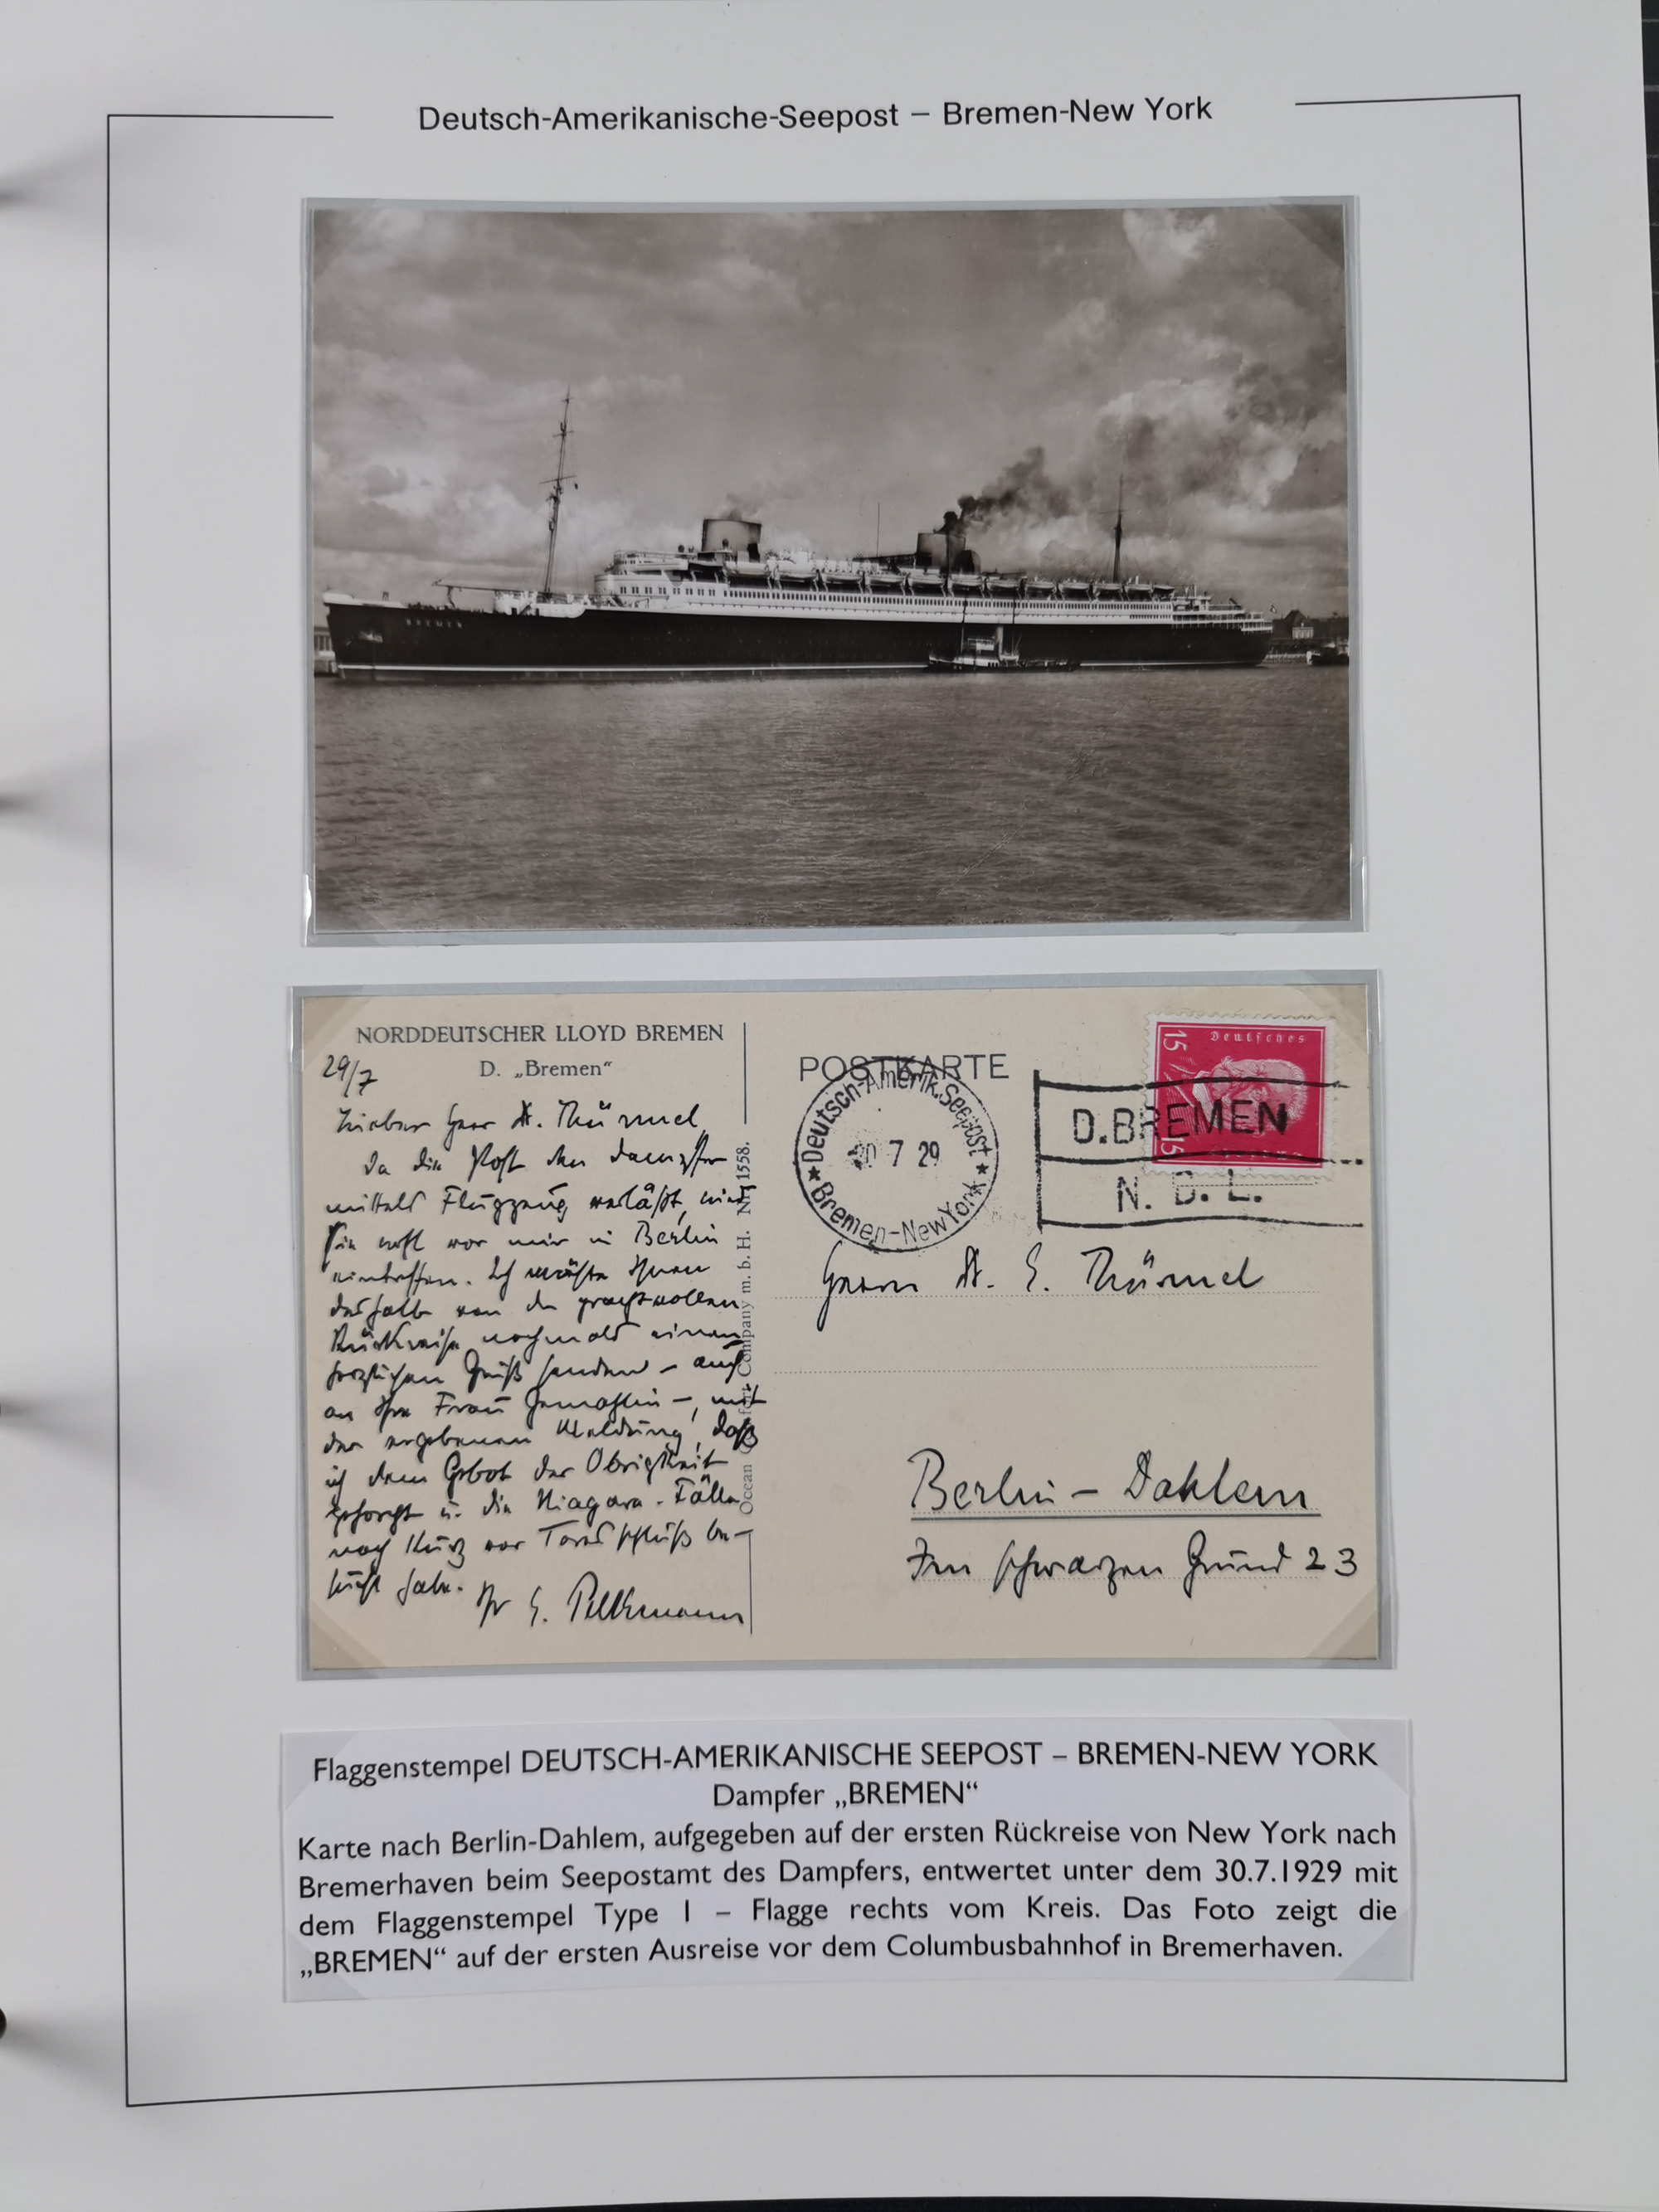 Deutsch-Amerikanische-Seepost – Bremen-New York
BREMEN
NORDDEUTSCHER LLOYD BREMEN
D. „Bremen“
29/7
Lieber Herr Dr. Thürmel,
Da die Post den Dampfer
mittels Flugzeug verläßt, wird
sie wohl vor mir in Berlin
eintreffen. Ich möchte Ihnen
deshalb von der prachtvollen
Rückreise nochmals einen
herzlichen Gruß senden – auch
an Ihre Frau Gemahlin –, mit
der ergebenen Meldung, daß
ich dem Gebot der Obrigkeit
gehorcht u. die Niagara-Fälle
noch kurz vor Torschluß be-
sucht habe. Ihr E.
Ocean Company m. b. H. Nr. 1558.
POSTKARTE
Deutsch-Amerik. Seepost
7 29
Bremen-New York
D. BREMEN
N. D. L.
Deutsches
15
15
Herrn Dr. E. Thürmel
Berlin – Dahlem
Im schwarzen Grund 23
Flaggenstempel DEUTSCH-AMERIKANISCHE SEEPOST – BREMEN-NEW YORK
Dampfer „BREMEN“
Karte nach Berlin-Dahlem, aufgegeben auf der ersten Rückreise von New York nach
Bremerhaven beim Seepostamt des Dampfers, entwertet unter dem 30.7.1929 mit
dem Flaggenstempel Type I – Flagge rechts vom Kreis. Das Foto zeigt die
„BREMEN“ auf der ersten Ausreise vor dem Columbusbahnhof in Bremerhaven.